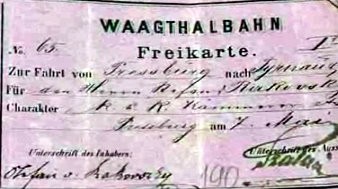 WAAGTHALBAHN
No. 65. I
Freikarte.
Zur Fahrt von Pressburg nach Tyrnau
Für den Herrn Stefan v. Rakovsk
Charakter k. u. k. Kämmerer
Pressburg am 7. Mai
Unterschrift des Inhabers: Unterschrift der Auss
Stefan v. Rakovszky
190